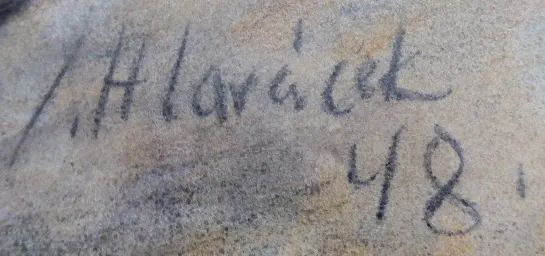 /. Hlaváček
48